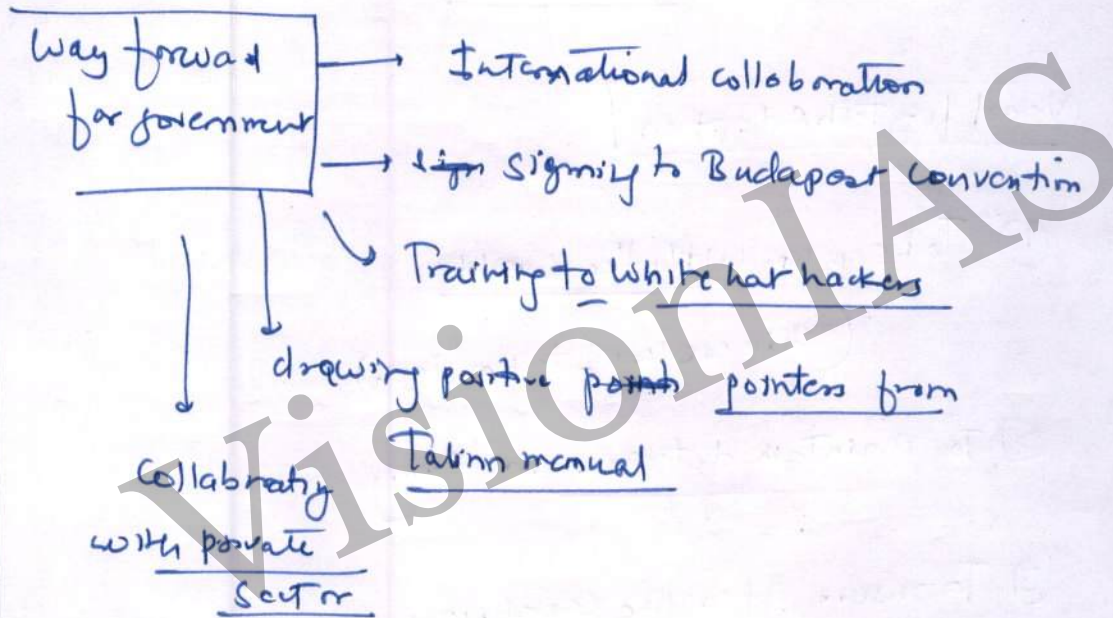 Way forward
for government
International collaboration
sign signing to Budapest Convention
Training to white hat hackers
drawing positive points pointers from
Talinn manual
Collabratig
with private
Sector
VisionIAS